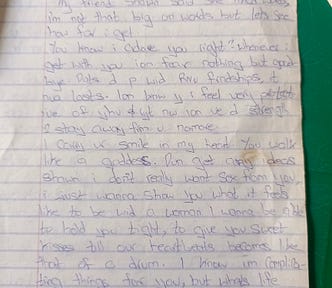 my friend Shawn said she
im not that big on words but lets see
how far i get
You know i adore you right? Whenever i
get with you ion have nothing but good
d p wid
lasts. Ion know y i feel very
ive of yhu & yt nw ion ve d
2 stay away frm u namore
I carry ur smile in my heart You walk
like a goddess. Don get any ideas
shawn i don't really want sex from you,
i just wanna show you what it feels
like to be wid a woman I wanna be able
to hold you tight, to give you sweet
kisses till our heartbeats become like
that of a drum. I know im complica-
ting things for you, but whats life